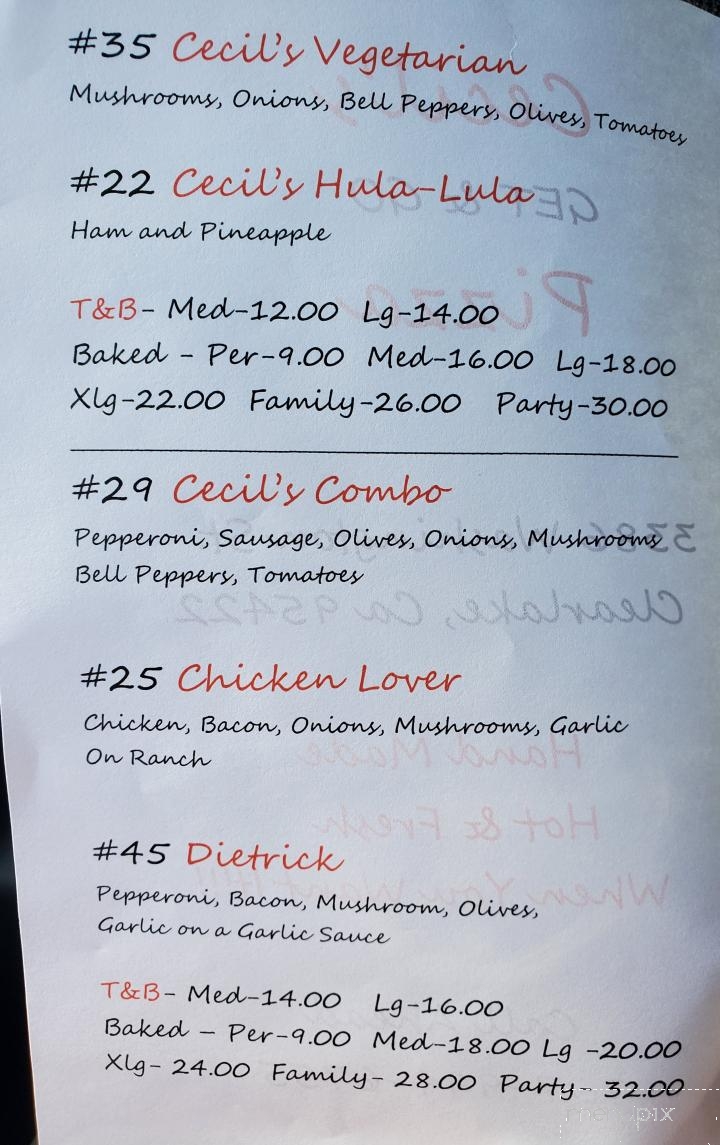 #35 Cecil's Vegetarian
Mushrooms, Onions, Bell Peppers, Olives, Tomatoes
#22 Cecil's Hula-Lula
Ham and Pineapple
T&B- Med-12.00 Lg-14.00
Baked - Per-9.00 Med-16.00 Lg-18.00
Xlg-22.00 Family-26.00 Party-30.00
#29 Cecil's Combo
Pepperoni, Sausage, Olives, Onions, Mushrooms
Bell Peppers, Tomatoes
#25 Chicken Lover
Chicken, Bacon, Onions, Mushrooms, Garlic
On Ranch
#45 Dietrick
Pepperoni, Bacon, Mushroom, Olives,
Garlic on a Garlic Sauce
T&B- Med-14.00 Lg-16.00
Baked - Per-9.00 Med-18.00 Lg -20.00
Xlg- 24.00 Family- 28.00 Party- 32.00